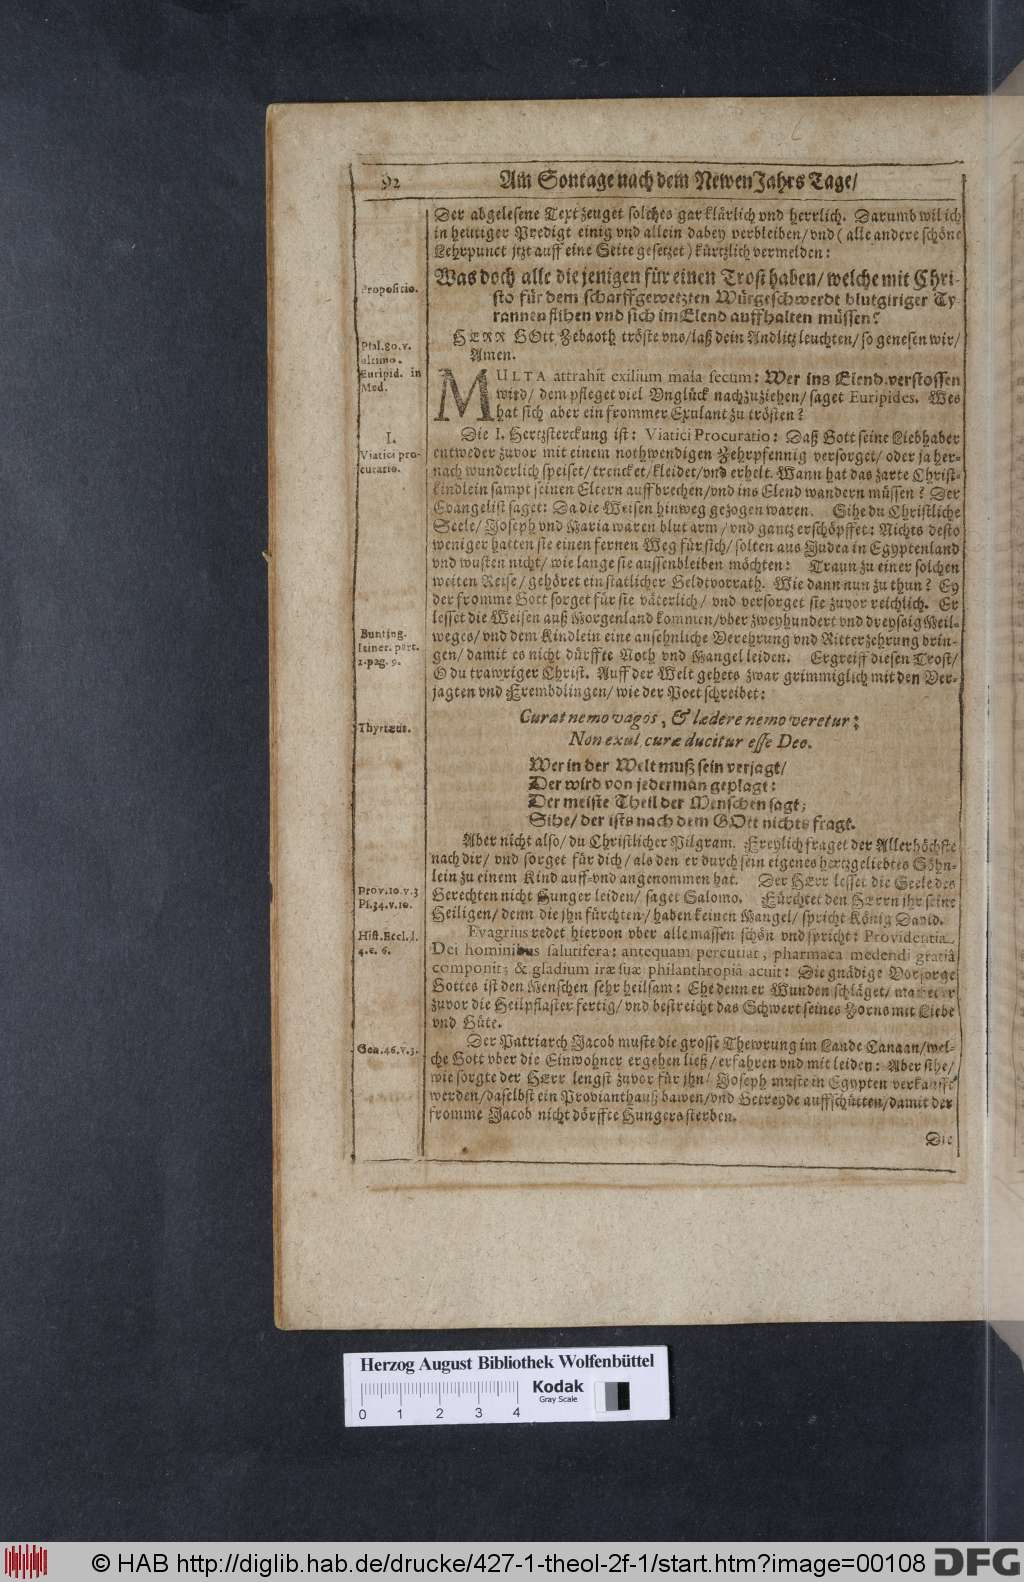 92
Am Sontage nach dem Newen Jahrs Tage/
Der abgelesene Text zeuget solches gar klärlich vnd herrlich. Darumb wil ich
in heutiger Predigt einig vnd allein dabey verbleiben/ vnd ( alle andere schöne
Lehrpunct jtzt auff eine Seite gesetzet ) kürtzlich vermelden:
Propositio.
Was doch alle die jenigen für einen Trost haben/ welche mit Chri-
sto für dem scharffgewetzten Würgeschwerdt blutgiriger Ty-
rannen flihen vnd sich im Elend auffhalten müssen?
Psal. 80. v.
ultimo.
HERR GOtt Zebaoth tröste vns/ laß dein Andlitz leuchten/ so genesen wir/
Amen.
Euripid. in
Med.
MULTA attrahit exilium mala secum: Wer ins Elend verstossen
wird/ dem pfleget viel Vnglück nachzuziehen/ saget Euripides. Wes
hat sich aber ein frommer Exulant zu trösten?
I.
Viatici pro-
curatio.
Die I. Hertzsterckung ist: Viatici Procuratio: Daß Gott seine Liebhaber
entweder zuvor mit einem nothwendigen Zehrpfennig versorget/ oder ja her-
nach wunderlich speiset/ trencket/ kleidet/ vnd erhelt. Wann hat das zarte Christ-
kindlein sampt seinen Eltern auffbrechen/ vnd ins Elend wandern müssen? Der
Evangelist saget: Da die Weisen hinweg gezogen waren. Sihe du Christliche
Seele/ Joseph vnd Maria waren blut arm/ vnd gantz erschöpffet: Nichts desto
weniger hatten sie einen fernen Weg für sich/ solten aus Judea in Egyptenland
vnd wusten nicht/ wie lange sie aussenbleiben möchten: Traun zu einer solchen
weiten Reise/ gehöret ein statlicher Geldtvorrath. Wie dann nun zu thun? Ey
der fromme Gott sorget für sie väterlich/ vnd versorget sie zuvor reichlich. Er
lesset die Weisen auß Morgenland kommen/ vber zweyhundert vnd dreyssig Meil-
Bunting.
Itiner. part.
2. pag. 9.
weges/ vnd dem Kindlein eine ansehnliche Verehrung vnd Ritterzehrung brin-
gen/ damit es nicht dürffte Noth vnd Mangel leiden. Ergreiff diesen Trost/
O du trawriger Christ. Auff der Welt gehets zwar grimmiglich mit den Ver-
jagten vnd Frembdlingen/ wie der Poet schreibet:
Thyrtæus.
Curat nemo vagos, & lædere nemo veretur;
Non exul curæ ducitur esse Deo.
Wer in der Welt muß sein verjagt/
Der wird von jederman geplagt:
Der meiste Theil der Menschen sagt;
Sihe/ der ists nach dem GOtt nichts fragt.
Aber nicht also/ du Christlicher Pilgram. Freylich fraget der Allerhöchste
nach dir/ vnd sorget für dich/ als den er durch sein eigenes hertzgeliebtes Söhn-
lein zu einem Kind auff- vnd angenommen hat. Der HErr lesset die Seele des
Prov. 10. v. 3
Ps. 34. v. 10.
Gerechten nicht Hunger leiden/ saget Salomo. Fürchtet den HErrn jhr seine
Heiligen/ denn die jhn fürchten/ haben keinen Mangel/ spricht König David.
Hist. Eccl. l.
4. c. 6.
Evagrius redet hiervon vber alle massen schön vnd spricht: Providentia
Dei hominibus salutifera: antequam percutiat, pharmaca medendi gratiâ
componit; & gladium iræ suæ philanthropiâ acuit: Die gnädige Vorsorge
Gottes ist den Menschen sehr heilsam: Ehe denn er Wunden schläget/ machet er
zuvor die Heilpflaster fertig/ vnd bestreicht das Schwert seines Zorns mit Liebe
vnd Güte.
Gen. 46. v. 3.
Der Patriarch Jacob muste die grosse Thewrung im Lande Canaan/ wel-
che Gott vber die Einwohner ergehen ließ/ erfahren vnd mit leiden: Aber sihe/
wie sorgte der HErr lengst zuvor für jhn/ Joseph muste in Egypten verkaufft
werden/ daselbst ein Provianthauß bawen/ vnd Getreyde auffschütten/ damit der
fromme Jacob nicht dörffte Hungers sterben.
Die
Herzog August Bibliothek Wolfenbüttel
Kodak
Gray Scale
0 1 2 3 4
© HAB http://diglib.hab.de/drucke/427-1-theol-2f-1/start.htm?image=00108
DFG